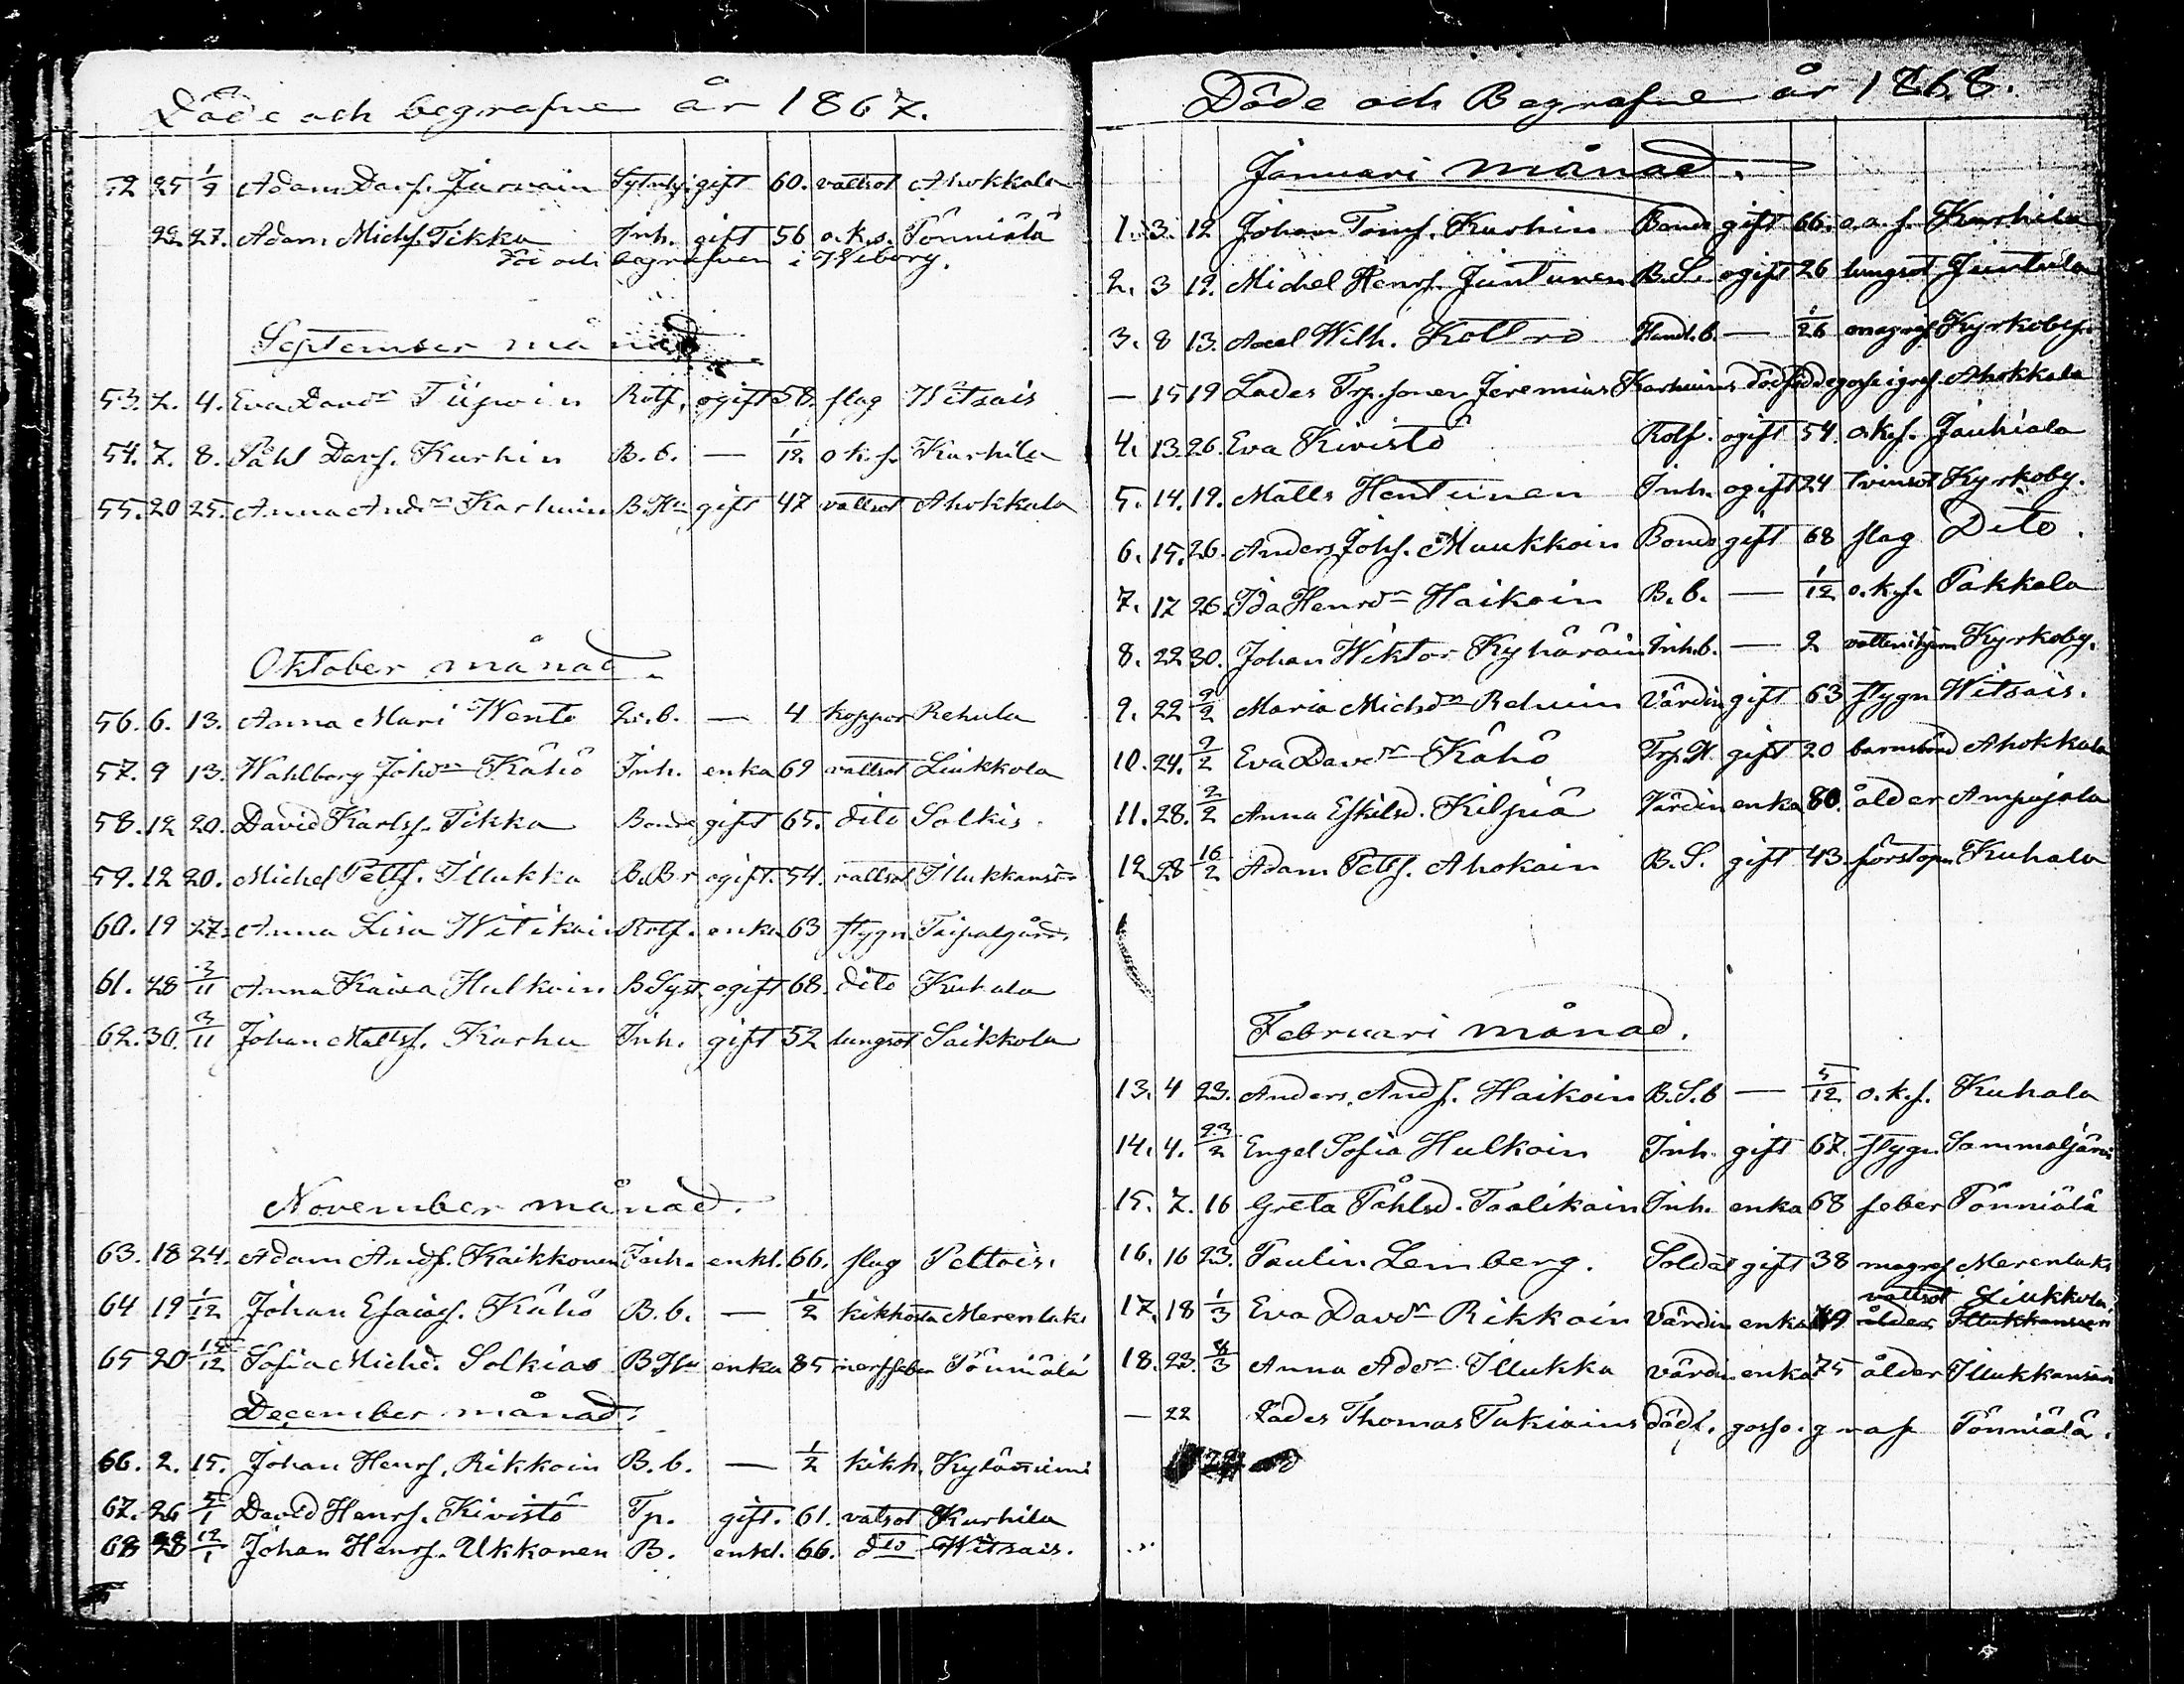 Döde och begrafne år 1867.
52 25 1/9 Adam Davs. Jurvain gift 60. vattsot Ahokkala
22. 27. Adam Michs. Tikka Inh. gift 56 o.k.s. Pönniälä
Död och begrafven i Wiborg.
September månad
53. 2. 4. Eva Davdr Rotf. ogift 58. slag Witsais
54. 7. 8. Påhl Davs. Kurhin B.b. — 1/12 o.k.s. Kurhila
55. 20 25. Anna Anddr Karhuin B.Hu gift 47 vattsot Ahokkala
Oktober månad
56. 6. 13. Anna Mari Wento b. — 4 koppor Rehula
57. 9 13. Wahlborg Johdr Kähö Inh. enka 69 vattsot Liukkola
58. 12 20. David Karlss. Tikka Bonde gift 65. dito Solkis.
59. 12 20. Michel Petts. Illukka B.Br ogift. 54. vattsot Illukkans:
60. 19 27. Anna Lisa Witikai Rotf. enka 63 stygn Taipalgård.
61. 28 3/11 Anna Kaisa Hulkoin B Syst. ogift 68. dito Kuhala
62. 30. 3/11 Johan Matts. Karhu Inh. gift 52 lungsot Saikkola
November månad.
63. 18 24. Adam Ands. Kaikkonen Inh. enkl. 66. slag Peltois.
64 19 1/12 Johan Esaias. Kähö B.b. — 1/2 kikhosta Merenlaks
65 20 15/12 Sofia Michd. Solkiao B Hu enka 85 nervfeber Pönniälä
December månad.
66. 2. 15. Johan Henrs. Rikkoin B.b. — 1/2 kikh. Kyläniemi
67. 26 5/1 David Henrs. Kivistö Tp. gift. 61. vatsot Kurhila
68 28 12/1 Johan Henrs. Ukkonen B. enkl. 66. dto Witsais.
Döde och Begrafne år 1868.
Januari månad.
1. 3. 12 Johan Toms. Kurhin Bonde gift 66. a.a.s. Kurhila
2. 3 12. Michel Henrs. Juntunen B.S. ogift 26 lungsot Juntula
3. 8 13. Axel Wilh. Kottro Handl.b. — 1/26 Kyrkoby.
— 15 19 Lades Trp. sonen Jeremias Karhuins dödfödde gosse i graf. Ahokkala
4. 13. 26. Eva Kivistö Rotf. ogift 54. o.k.s. Jäuhiala
5. 14. 19. Matts Hentunen Inh. ogift 24 tvinsot Kyrkoby.
6. 15. 26. Anders Johs. Muukkoin Bonde gift 68 slag Dito.
7. 17 26. Ida Henrdr Haikoin B.b. — 1/12 o.k.s. Pakkala
8. 22 30. Johan Wiktor Kyhäräin Inh.b. — 2 Kyrkoby.
9. 22 2/2 Maria Michdr Rehuin Värdin gift 63 stygn Witsais.
10. 24. 2/2 Eva Davdr Kähö Trp.H. gift 20 barnsbörd Ahokkala
11. 28. 2/2 Anna Eskilsd. Kilpiä Värdin enka 80. ålder Ampujala
12 28 16/2 Adam Petts. Ahokain B.S. gift 43 förstopn. Kuhala
Februari månad.
13. 4 23. Anders Ands. Haikoin B.S.b — 5/12 o.k.s. Kuhala
14. 4. 23/2 Engel Sofia Hulkoin Inh. gift 67. stygn Sammaljärvi
15. 7. 16 Greta Påhlsd. Taalikain Inh. enka 68 feber Pönniälä
16. 16 23. Paulin Lemberg. Soldat gift 38 magref Merenlaks
vattsot Liukkola.
17. 18 1/3 Eva Davdr Rikkoin Värdin enka 49 ålder Illukkansaari
18. 23. 8/3 Anna Addr Illukka värdin enka 75 ålder Illukkansaari
— 22 Lades Thomas Tukiains dödf. gosse. i graf Pönniälä.